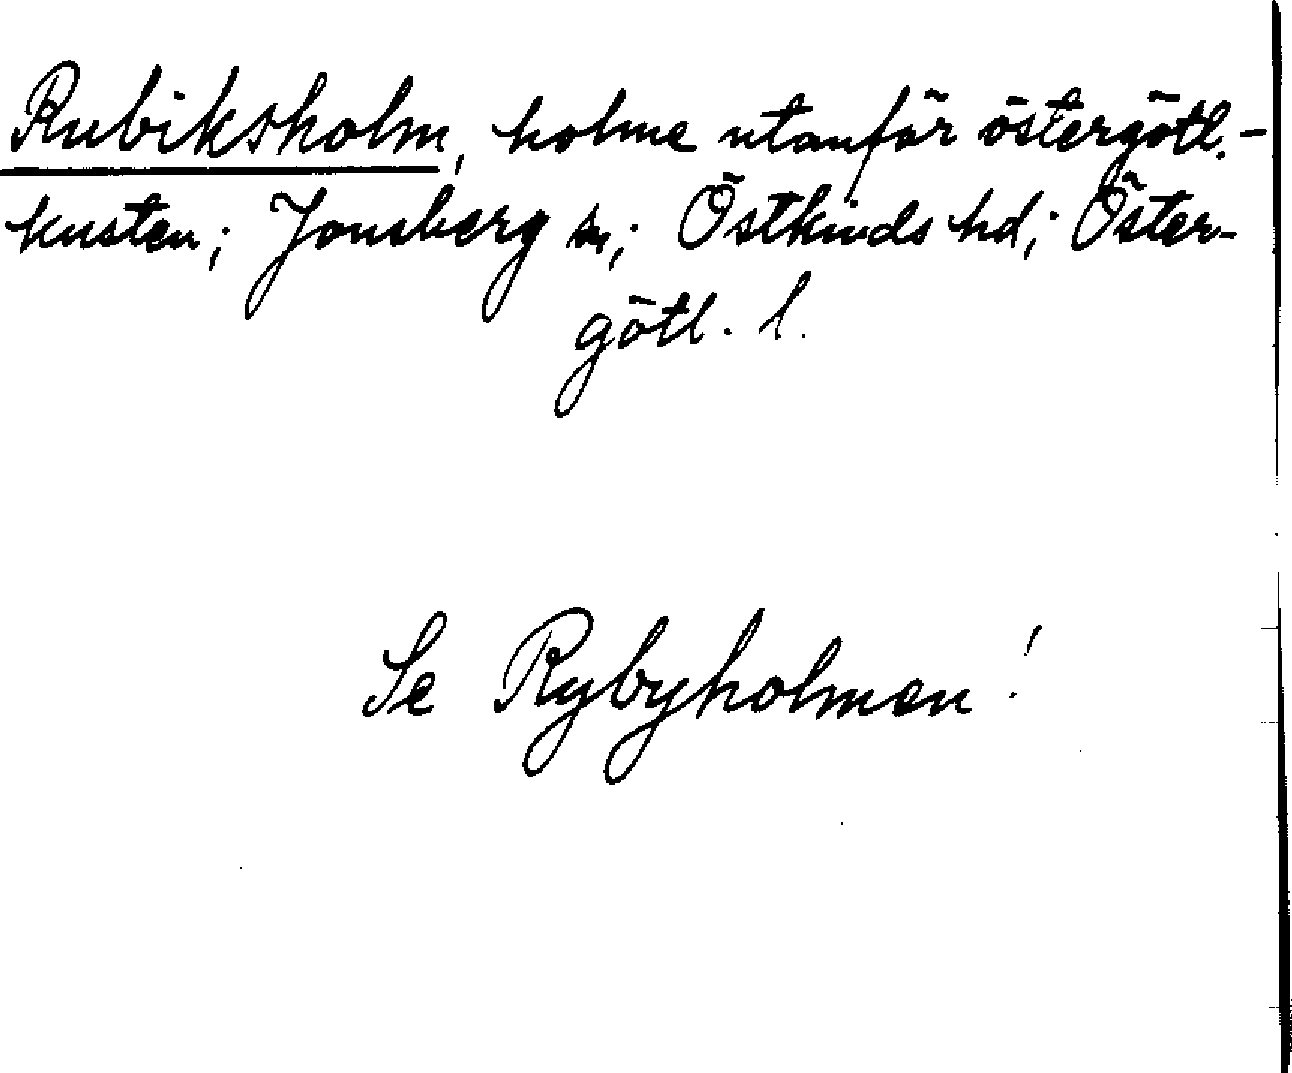 Rubiksholm, holme utanför östergötl.-
kusten; Jonsberg sn; Östkinds hd; Öster-
götl. l.
Se Rybyholmen!